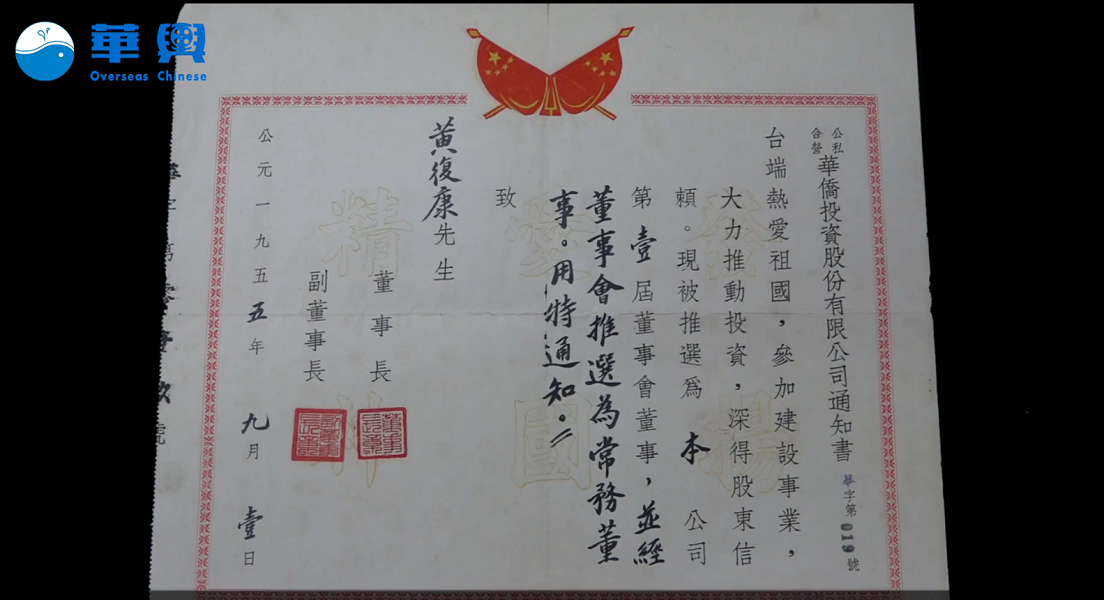 華興
Overseas Chinese
公私
合營
華僑投資股份有限公司通知書
華字第019號
台端熱愛祖國，參加建設事業，
大力推動投資，深得股東信
賴。現被推選爲本公司
第壹屆董事會董事，並經
董事會推選為常務董
事。用特通知。
致
黃復康先生
董事長
副董事長
公元一九五五年九月壹日
愛國
精神